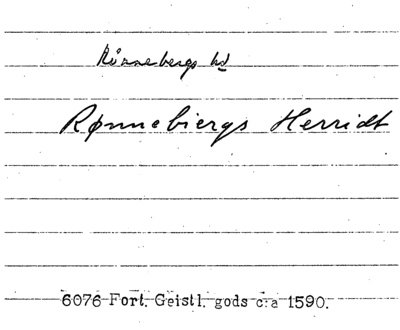 Rönnebergs hd
Rønnebiergs Herridt
6076 Fort. Geistl. gods c:a 1590.